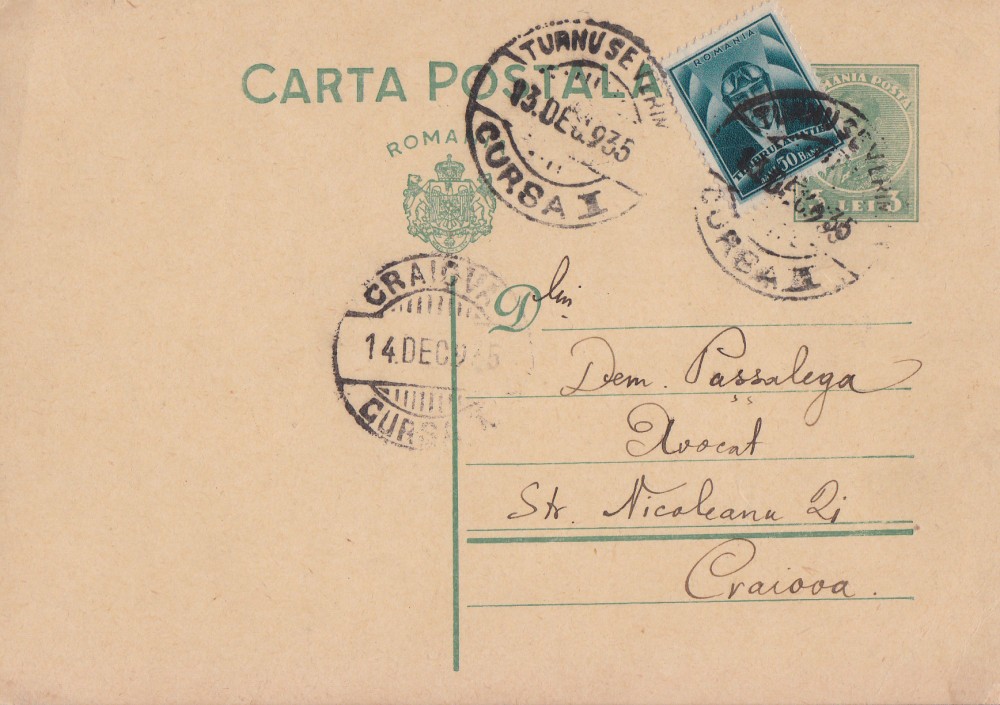 CARTA POSTALA
ROMA
TURNU SEVERIN
13.DEC.935
CURSA I
ROMANIA
TIMBRUL AVIATIEI
50 BANI
MANIA POSTA
LEI
TURNU SEVERIN
DEC.935
CURSA
CRAIOVA
14.DEC.935
CURSA
D lui
Dem. Pașșalega
Avocat
Str. Nicoleanu 21
Craiova.